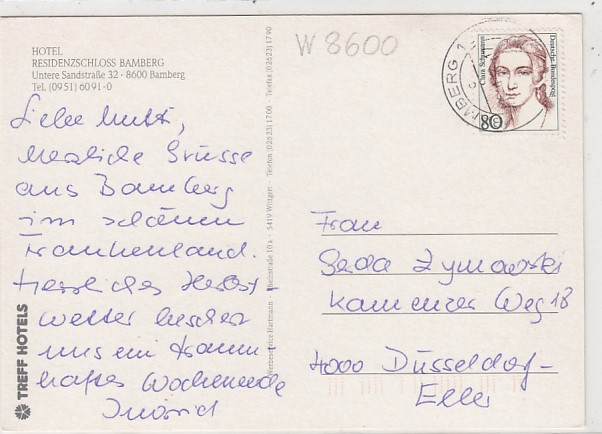 HOTEL
RESIDENZSCHLOSS BAMBERG
Untere Sandstraße 32 · 8600 Bamberg
Tel. (09 51) 60 91-0
W 8600
MBERG 1
Clara Schumann
Deutsche Bundespost
80
Liebe Mutti,
herzliche Grüsse
aus Bamberg
im schönen
Frankenland.
Herrliches Herbst-
wetter beschert
uns ein traum-
haftes Wochenende
Ingrid
Frau
Gerda Zymowski
Kamenzer Weg 18
4000 Düsseldorf-
Eller
TREFF HOTELS
Werbeservice Hartmann · Rheinstraße 10 a · 5419 Willgert · Telefon (0 26 23) 17 00 · Telefax (0 26 23) 17 90